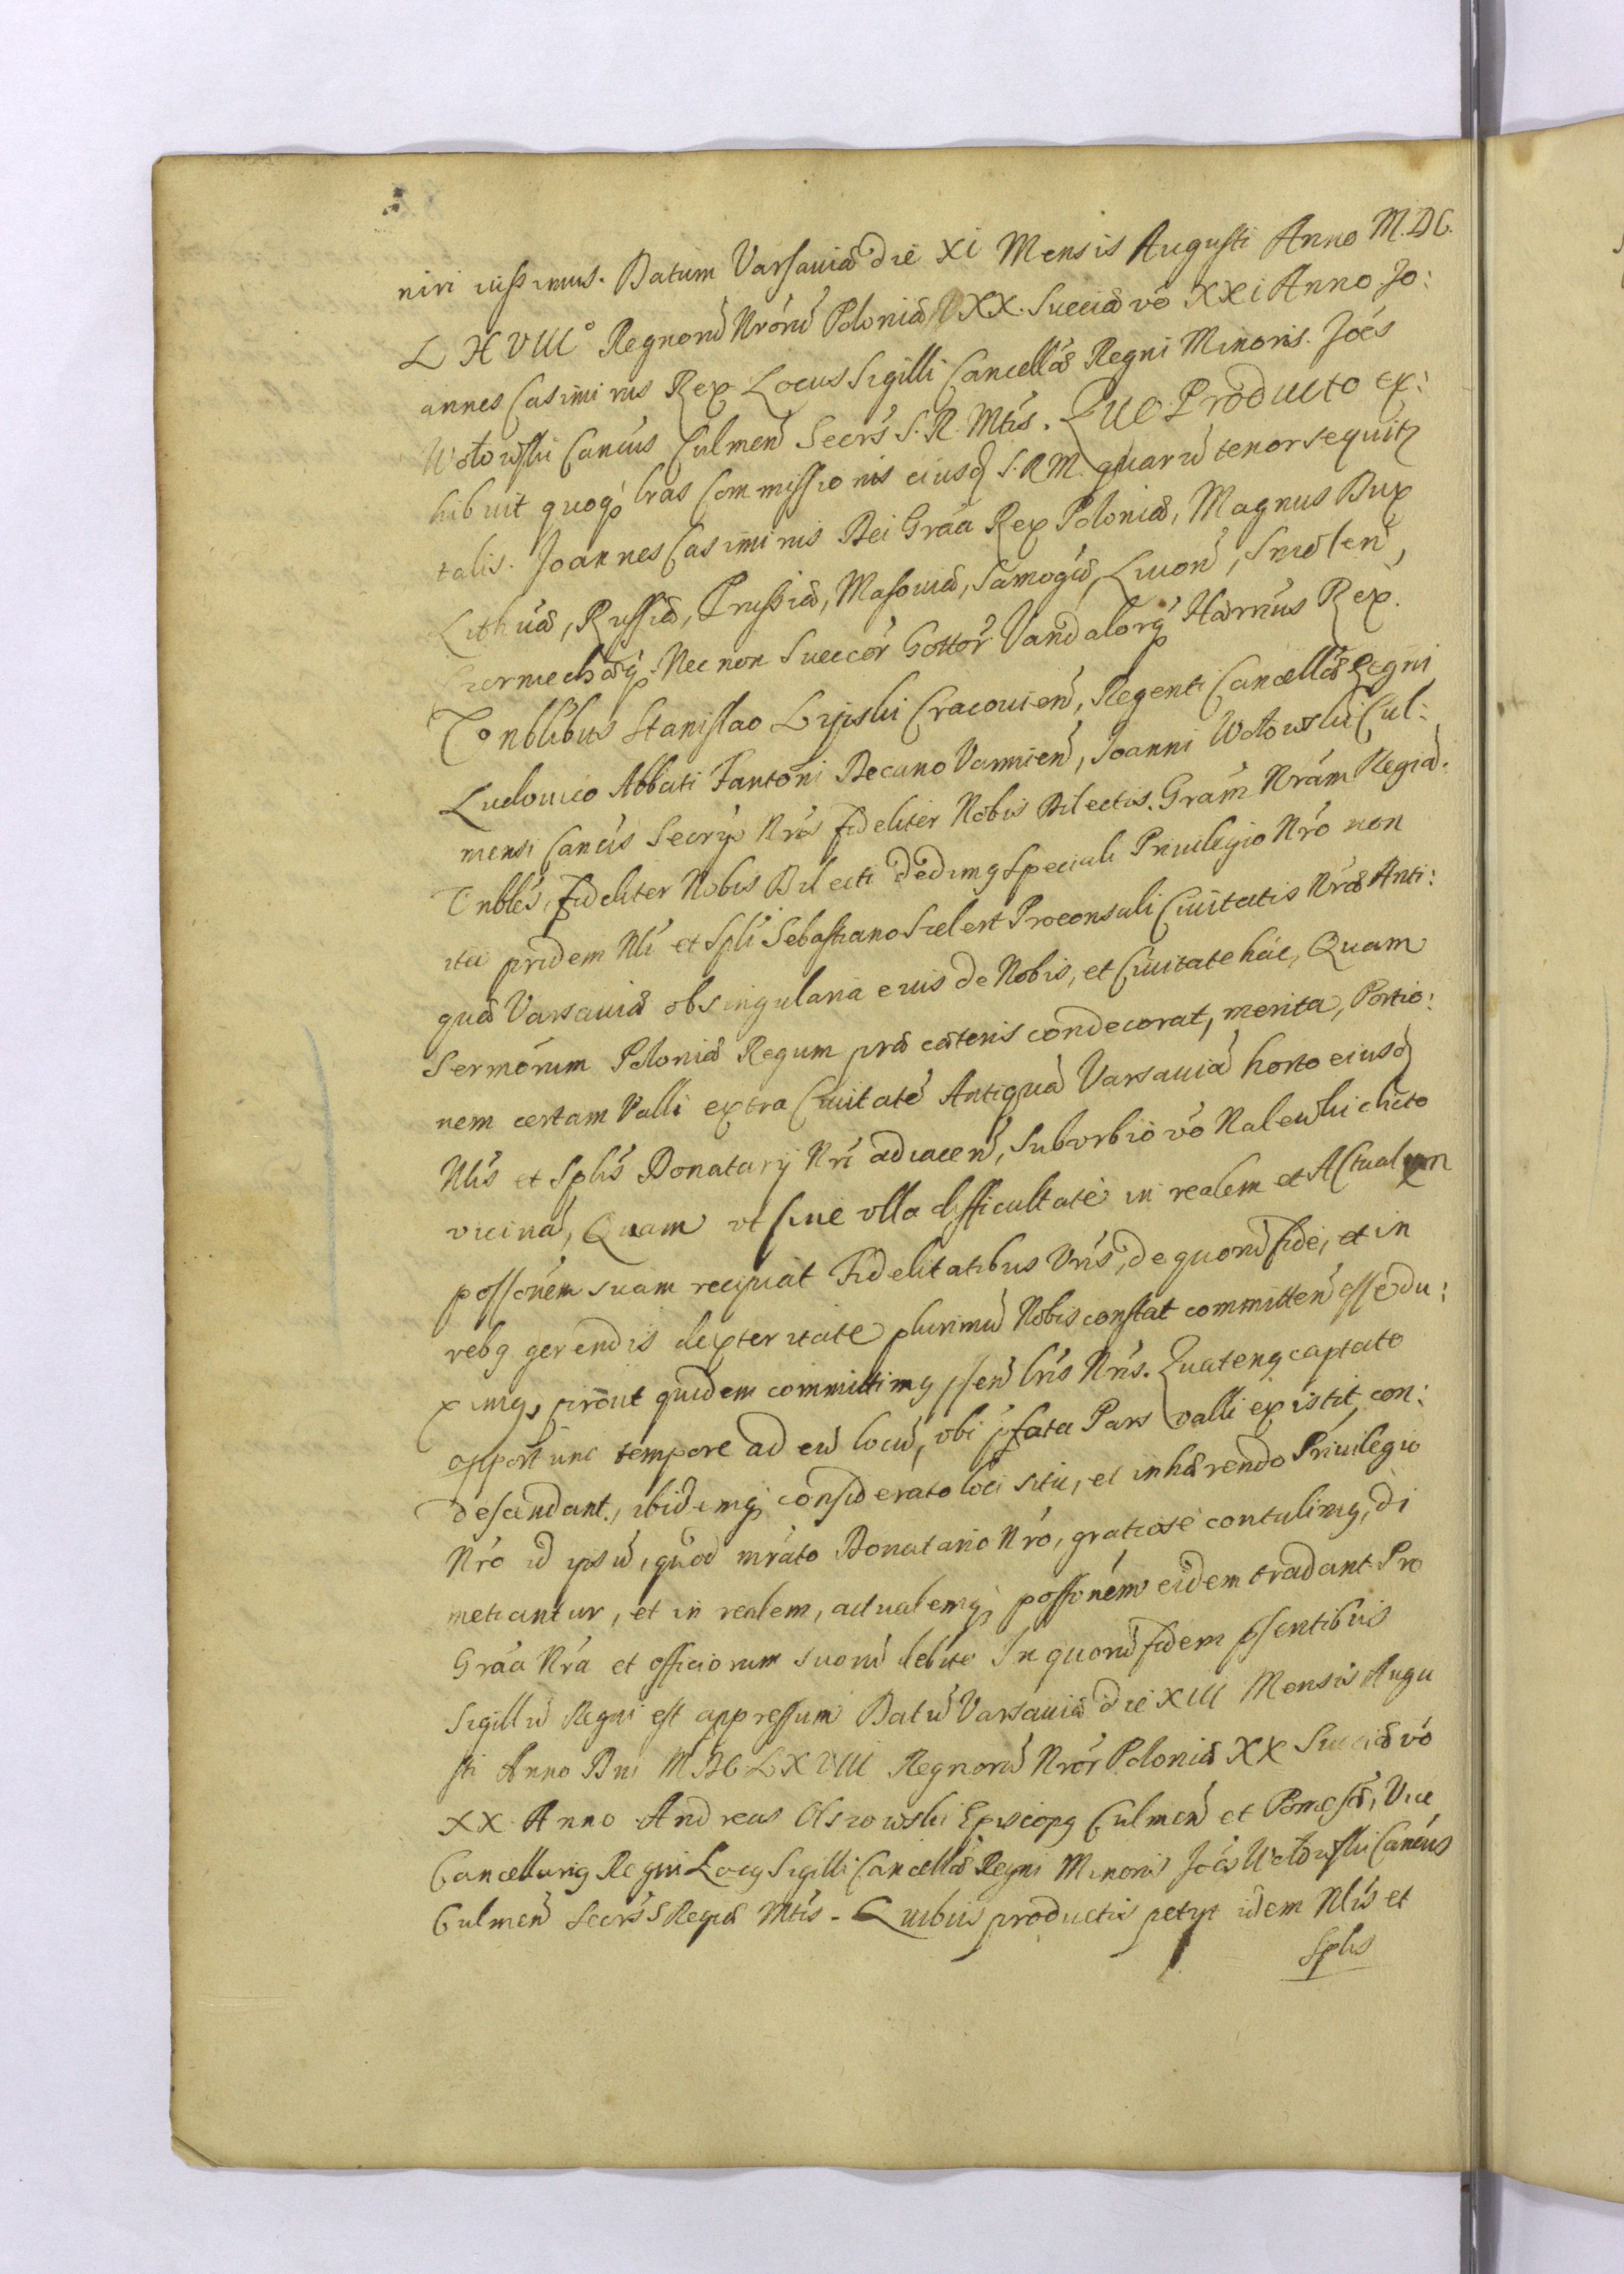 niri iussimus. Datum Varsaviæ die XI Mensis Augusti Anno M.DC.
LXVIII° Regnorũ Nrórũ Poloniæ XX. Sueciæ vó XXI Anno Jo:
annes Casimirus Rex Locus Sigilli Cancellǽ Regni Minoris. Joés
Wołowski Cancús Culmeñ Secrś S.R. Mtis. Quo Producto ex:
hibuit quoq; lras Commissionis eiusd S.R.M. quarũ tenor sequitr
talis. Joannes Casimirus Dei Gráa Rex Poloniæ, Magnus Dux
Lithuǽ, Russiæ, Prussiæ, Masouiæ, Samogǽ, Liuoñ, Smoleñ,
Czerniechǽq; Nec non Sueccór Gottór Vandalorq; Hærrius Rex.
Vnblibus Stanislao Lipski Cracouieñ, Regenti Cancellǽ Regni
Ludouico Abbati Fantoni Decano Varmieñ, Joanni Wołowski Cul:
mensi Cancis Secrijs Nris fideliter Nobis Dilectis. Grám Nrám Regiã.
Vnblés, fideliter Nobis Dilecti dedimq speciali Priuilegio Nró non
ita pridem Nli et Spli Sebastiano Szelert Proconsuli Ciuitatis Nrǽ Anti:
quæ Varsauiæ ob singularia eius de Nobis, et Ciuitate hác, Quam
Sermórum Poloniæ Regum præ cæteris condecorat, merita, Portio:
nem certam Valli extra Ciuitatẽ Antiquã Varsauiã horto eiusd
Nlis et Splis Donatarij Nri adiaceñ, Suburbio vó Nalewki dicto
vicinã, Quam vt sine vlla difficultate in realem et Actualem
possónem suam recipiat Fidelitatibus Vris, de quorũ fide, et in
rebq gerendis dexteritate plurimũ Nobis constat committeñ esse du:
ximq, prout quidem committimq pseñ lris Nris. Quatenq captato
opportuno tempore ad eũ locũ, vbi pfata Pars valli existit, con:
descendant, ibidemq; considerato loci situ, et inhærendo Priuilegio
Nró id ipsũ, quod mráto Donatario Nró, gratiose contulimq, di
metiantur, et in realem, actualemq; possónem eidem tradant. Pro
Gráa Nrá et officiorum suorũ debito In quorũ fidem psentibus
Sigillũ Regni est appressum Datũ Varsauiæ die XIII Mensis Augu
sti Anno Dni MDCLXVIII Regnorũ Nrór Poloniæ XX Sueciæ vó
XX. Anno Andreas Olszowski Episcopq Culmeñ et Pomesǽ, Vice
Cancellariq Regni Locq Sigilli Cancellǽ Regni Minoris Joés Wołowski Cancús
Culmeñ Secrś S Regiǽ Mtis - Quibus productis petyt idem Nlis et
Splis